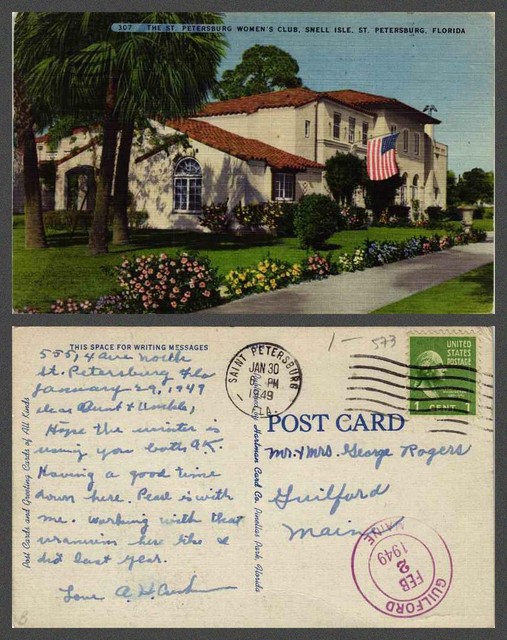 307 THE ST. PETERSBURG WOMEN'S CLUB, SNELL ISLE, ST. PETERSBURG, FLORIDA
THIS SPACE FOR WRITING MESSAGES
555, 4 ave north
St. Petersburg Fla
January 29, 1949
Dear Aunt & Uncle,
Hope the winter is
using you both O.K.
Having a good time
down here. Pearl is with
me. working with that
like I
did last year.
Love A. H.
Post Cards and Greeting Cards of All Kinds
Hartman Card Co. Pinellas Park, Florida
SAINT PETERSBURG
JAN 30
6 PM
1949
FLA.
1 - 573
UNITED STATES
POSTAGE
1 CENT 1
POST CARD
Mr. & Mrs. George Rogers
Guilford
Maine
GUILFORD MAINE
FEB
2
1949